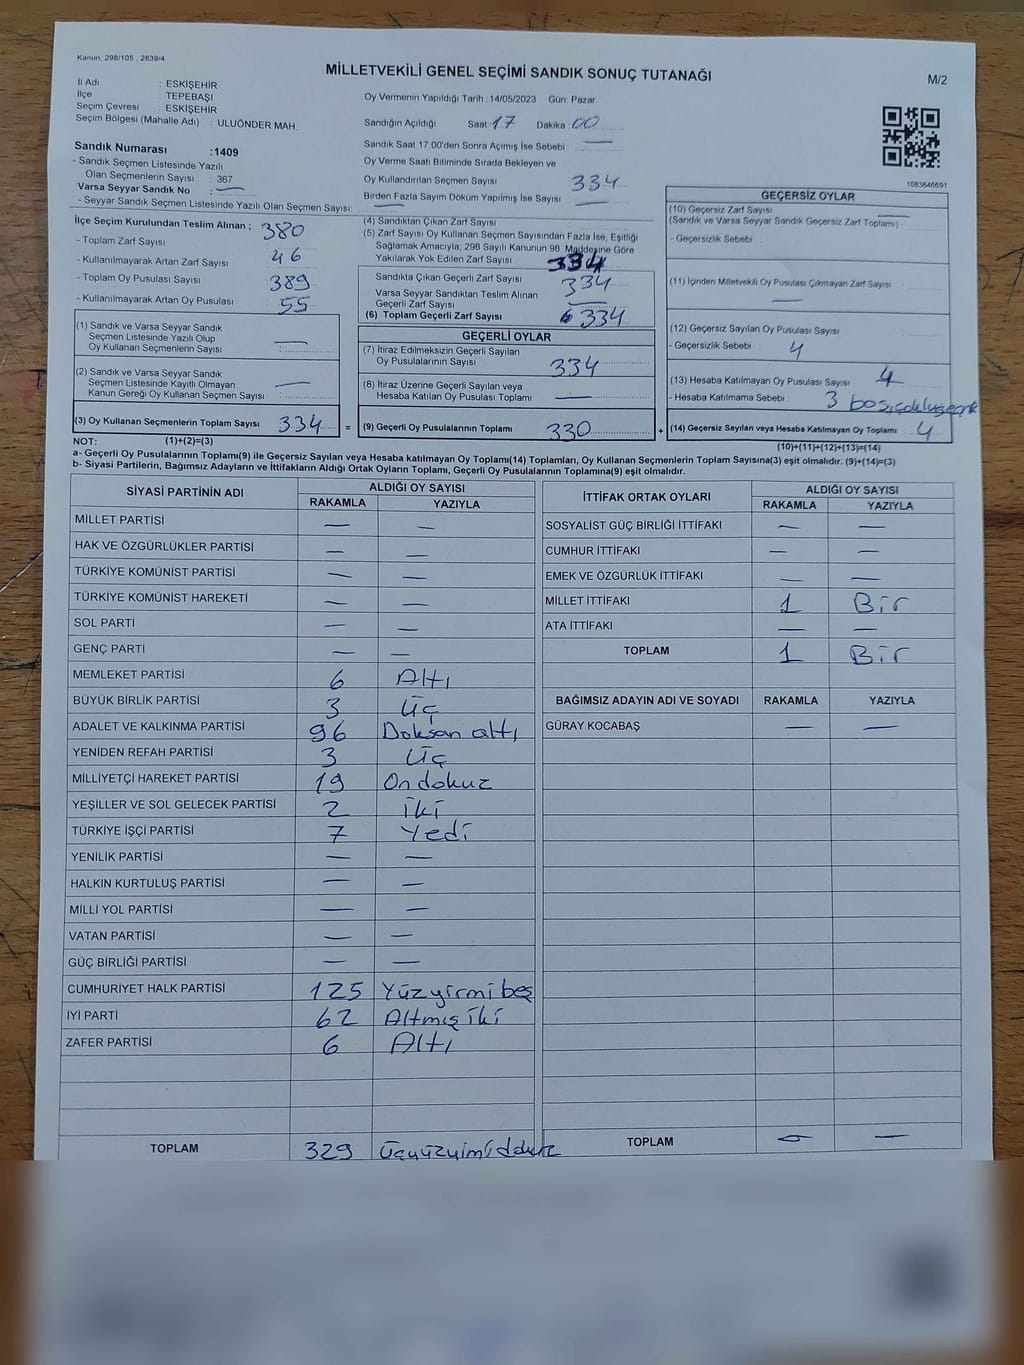 Kanun; 298/105 , 2839/4
MİLLETVEKİLİ GENEL SEÇİMİ SANDIK SONUÇ TUTANAĞI
M/2
İl Adı : ESKİŞEHİR
İlçe : TEPEBAŞI
Seçim Çevresi : ESKİŞEHİR
Seçim Bölgesi (Mahalle Adı) : ULUÖNDER MAH.
Oy Vermenin Yapıldığı Tarih : 14/05/2023 Gün: Pazar
Sandığın Açıldığı Saat: 17 Dakika : 00
Sandık Numarası :1409
- Sandık Seçmen Listesinde Yazılı
Olan Seçmenlerin Sayısı : 367
Varsa Seyyar Sandık No : —
- Seyyar Sandık Seçmen Listesinde Yazılı Olan Seçmen Sayısı:
Sandık Saat 17:00'den Sonra Açılmış İse Sebebi : —
Oy Verme Saati Bitiminde Sırada Bekleyen ve
Oy Kullandırılan Seçmen Sayısı 334
Birden Fazla Sayım Döküm Yapılmış İse Sayısı : —
1083646691
İlçe Seçim Kurulundan Teslim Alınan ; 380
- Toplam Zarf Sayısı
- Kullanılmayarak Artan Zarf Sayısı : 46
- Toplam Oy Pusulası Sayısı : 389
- Kullanılmayarak Artan Oy Pusulası : 55
(1) Sandık ve Varsa Seyyar Sandık
Seçmen Listesinde Yazılı Olup
Oy Kullanan Seçmenlerin Sayısı : —
(2) Sandık ve Varsa Seyyar Sandık
Seçmen Listesinde Kayıtlı Olmayan
Kanun Gereği Oy Kullanan Seçmen Sayısı : —
(3) Oy Kullanan Seçmenlerin Toplam Sayısı : 334 =
(4) Sandıktan Çıkan Zarf Sayısı :
(5) Zarf Sayısı Oy Kullanan Seçmen Sayısından Fazla İse, Eşitliği
Sağlamak Amacıyla, 298 Sayılı Kanunun 98. Maddesine Göre
Yakılarak Yok Edilen Zarf Sayısı : 334
Sandıkta Çıkan Geçerli Zarf Sayısı : 334
Varsa Seyyar Sandıktan Teslim Alınan
Geçerli Zarf Sayısı : —
(6) Toplam Geçerli Zarf Sayısı : 334
GEÇERLİ OYLAR
(7) İtiraz Edilmeksizin Geçerli Sayılan
Oy Pusulalarının Sayısı : 334
(8) İtiraz Üzerine Geçerli Sayılan veya
Hesaba Katılan Oy Pusulası Toplamı : —
(9) Geçerli Oy Pusulalarının Toplamı : 330 +
GEÇERSİZ OYLAR
(10) Geçersiz Zarf Sayısı : —
(Sandık ve Varsa Seyyar Sandık Geçersiz Zarf Toplamı) :
- Geçersizlik Sebebi :
(11) İçinden Milletvekili Oy Pusulası Çıkmayan Zarf Sayısı :
—
(12) Geçersiz Sayılan Oy Pusulası Sayısı :
- Geçersizlik Sebebi : 4
(13) Hesaba Katılmayan Oy Pusulası Sayısı : 4
- Hesaba Katılmama Sebebi : 3 boş,
(14) Geçersiz Sayılan veya Hesaba Katılmayan Oy Toplamı : 4
NOT: (1)+(2)=(3)
(10)+(11)+(12)+(13)=(14)
a- Geçerli Oy Pusulasının Toplamı(9) ile Geçersiz Sayılan veya Hesaba katılmayan Oy Toplamı(14) Toplamları, Oy Kullanan Seçmenlerin Toplam Sayısına(3) eşit olmalıdır. (9)+(14)=(3)
b- Siyasi Partilerin, Bağımsız Adayların ve İttifakların Aldığı Ortak Oyların Toplamı, Geçerli Oy Pusulalarının Toplamına(9) eşit olmalıdır.
SİYASİ PARTİNİN ADI ALDIĞI OY SAYISI
RAKAMLA YAZIYLA
MİLLET PARTİSİ — —
HAK VE ÖZGÜRLÜKLER PARTİSİ — —
TÜRKİYE KOMÜNİST PARTİSİ — —
TÜRKİYE KOMÜNİST HAREKETİ — —
SOL PARTİ — —
GENÇ PARTİ — —
MEMLEKET PARTİSİ 6 Altı
BÜYÜK BİRLİK PARTİSİ 3 Üç
ADALET VE KALKINMA PARTİSİ 96 Doksan altı
YENİDEN REFAH PARTİSİ 3 Üç
MİLLİYETÇİ HAREKET PARTİSİ 19 Ondokuz
YEŞİLLER VE SOL GELECEK PARTİSİ 2 İki
TÜRKİYE İŞÇİ PARTİSİ 7 Yedi
YENİLİK PARTİSİ — —
HALKIN KURTULUŞ PARTİSİ — —
MİLLİ YOL PARTİSİ — —
VATAN PARTİSİ — —
GÜÇ BİRLİĞİ PARTİSİ — —
CUMHURİYET HALK PARTİSİ 125 Yüzyirmi beş
İYİ PARTİ 62 Altmış iki
ZAFER PARTİSİ 6 Altı
TOPLAM 329
İTTİFAK ORTAK OYLARI ALDIĞI OY SAYISI
RAKAMLA YAZIYLA
SOSYALİST GÜÇ BİRLİĞİ İTTİFAKI — —
CUMHUR İTTİFAKI — —
EMEK VE ÖZGÜRLÜK İTTİFAKI — —
MİLLET İTTİFAKI 1 Bir
ATA İTTİFAKI — —
TOPLAM 1 Bir
BAĞIMSIZ ADAYIN ADI VE SOYADI RAKAMLA YAZIYLA
GÜRAY KOCABAŞ — —
TOPLAM — —